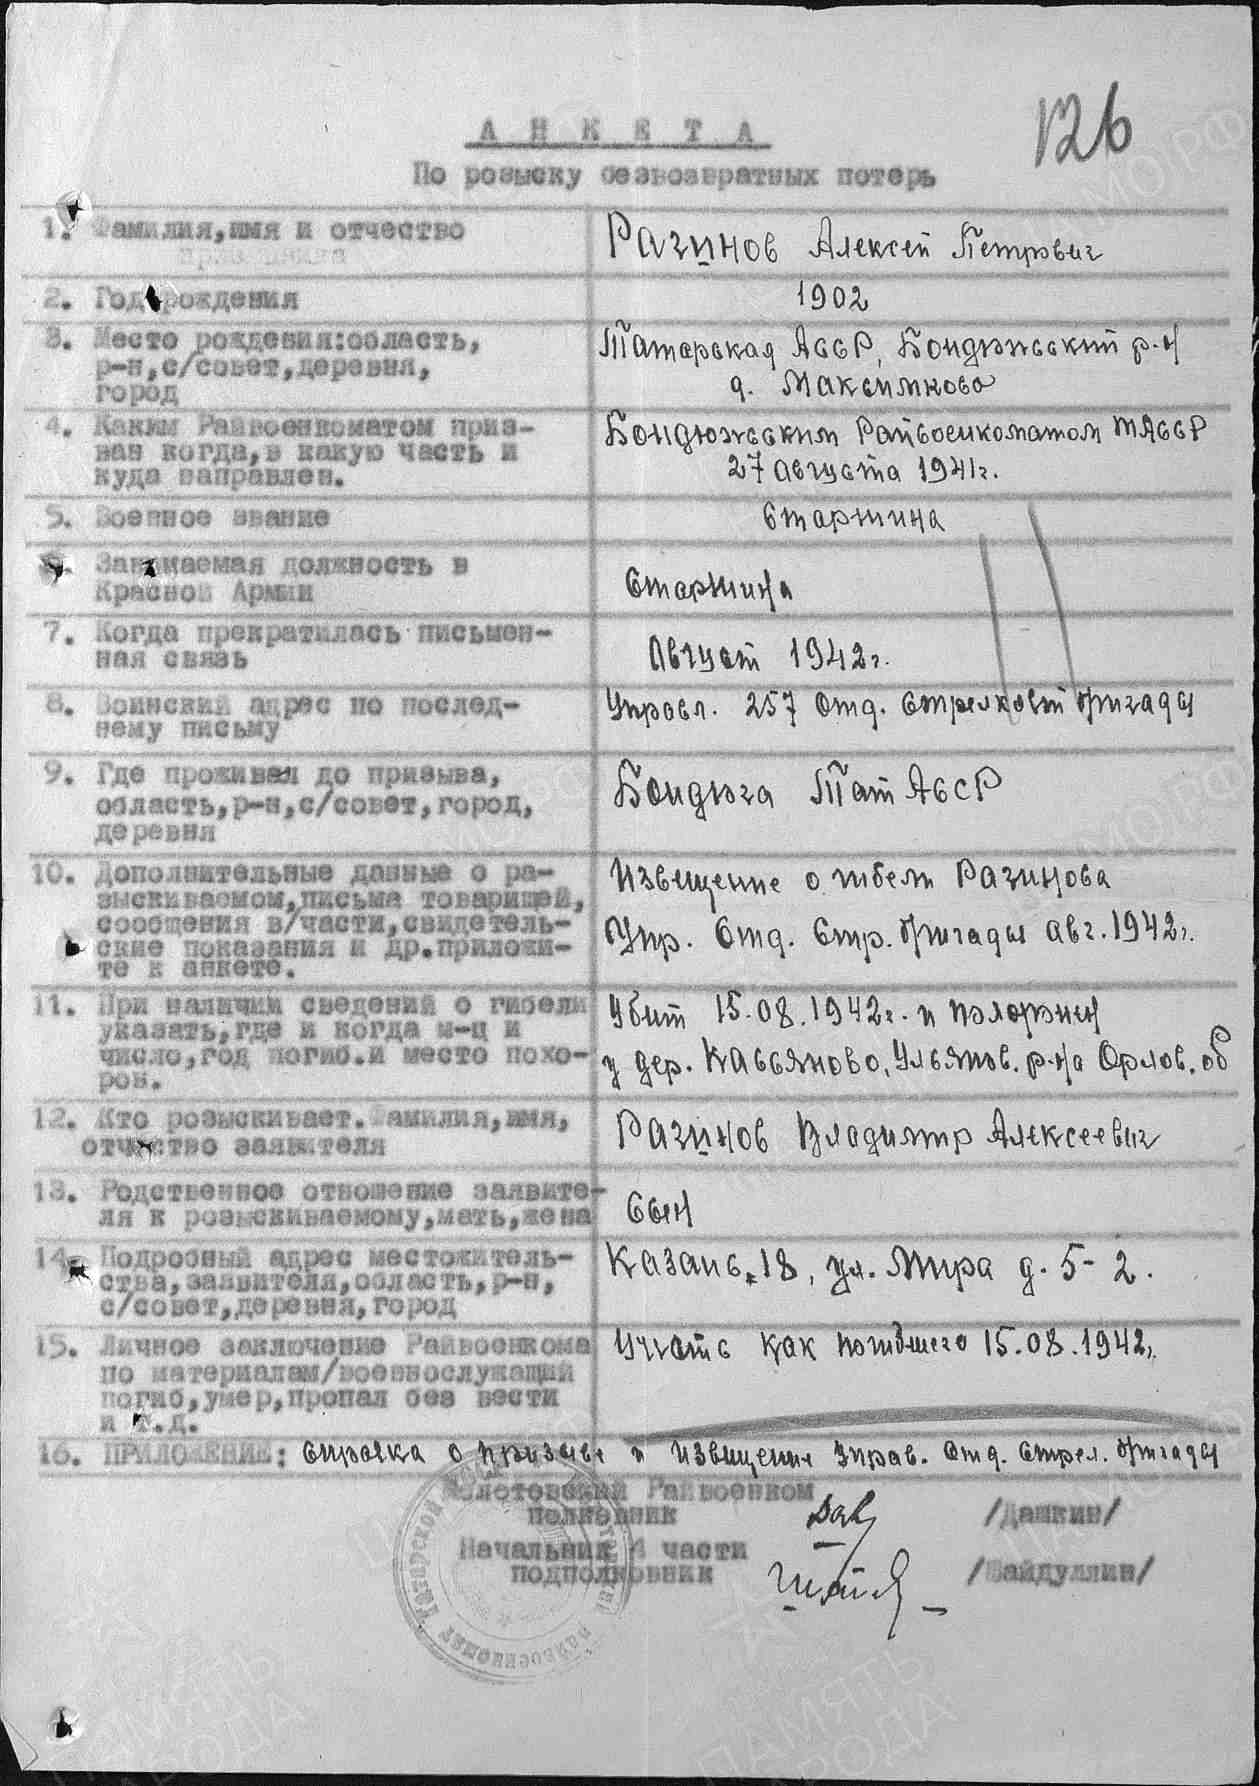 126
А Н К Е Т А
По розыску безвозвратных потерь
1. Фамилия,имя и отчество
Разинов Алексей Петрович
2. Год рождения
1902
3. Место рождения:область,
р-н,с/совет,деревня,
город
Татарская АССР, Бондюжский р-н
д. Максимково
4. Каким Райвоенкоматом приз-
ван когда,в какую часть и
куда направлен.
Бондюжским Райвоенкоматом ТАССР
27 августа 1941г.
5. Военное звание
Старшина
Занимаемая должность в
Красной Армии
Старшина
7. Когда прекратилась письмен-
ная связь
Август 1942г.
8. Воинский адрес по послед-
нему письму
Управл. 257 Отд. Стрелковой бригады
9. Где проживал до призыва,
область,р-н,с/совет,город,
деревня
Бондюга Тат АССР
10. Дополнительные данные о ра-
зыскиваемом,письма товарищей,
сообщения в/части,свидетель-
ские показания и др.приложи-
те к анкете.
Извещение о гибели Разинова
Упр. Отд. Стр. бригады авг. 1942г.
11. При наличии сведений о гибели
указать,где и когда м-ц и
число,год погиб.и место похо-
рон.
Убит 15.08.1942г. и похоронен
у дер. Кассьяново, Ульянов. р-на Орлов. об
12. Кто розыскивает.Фамилия,имя,
отчество заявителя
Разинов Владимир Алексеевич
13. Родственное отношение заявите-
ля к розыскиваемому,мать,жена
Сын
14. Подробный адрес местожитель-
ства,заявителя,область,р-н,
с/совет,деревня,город
Казань-18, ул. Мира д. 5-2.
15. Личное заключение Райвоенкома
по материалам/военнослужащий
погиб,умер,пропал без вести
и т.д.
Учесть как погибшего 15.08.1942г.
16. ПРИЛОЖЕНИЕ: Справка о призыве и извещение Управ. Отд. Стрел. бригады
Молотовский Райвоенком
полковник /Дашкин/
Начальник 4 части
подполковник /Шайдуллин/
ПАМЯТЬ
НАРОДА
ПАМЯТЬ
НАРОДА